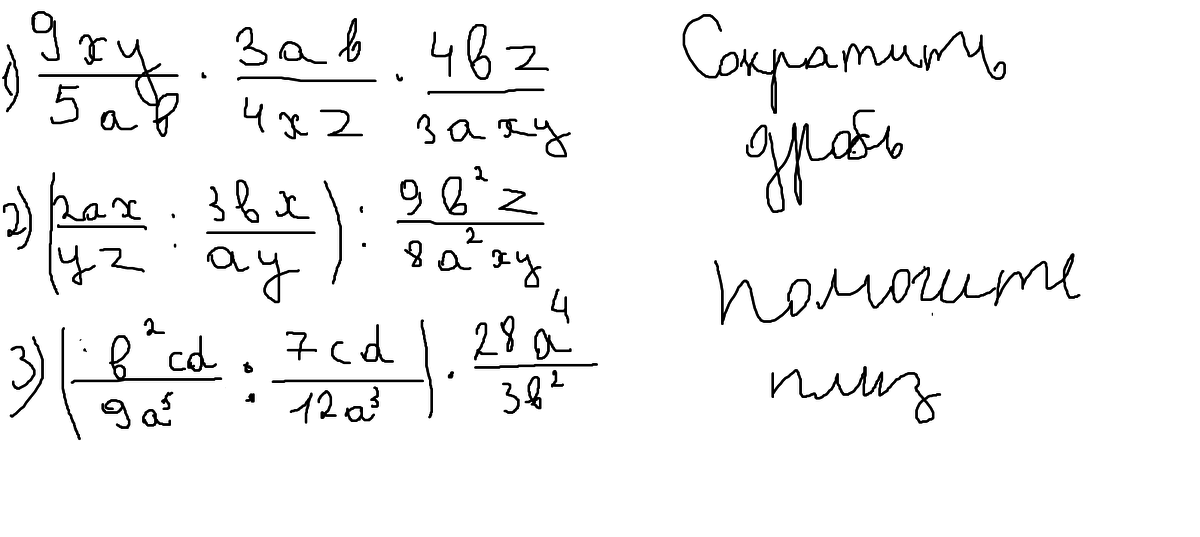 1) 9xy/5ab · 3ab/4xz · 4bz/3axy
2) (2ax/yz : 3bx/ay) : 9b²z/8a²xy
3) (b²cd/9a⁵ : 7cd/12a³) · 28a⁴/3b²
Сократить
дробь
помогите
плиз